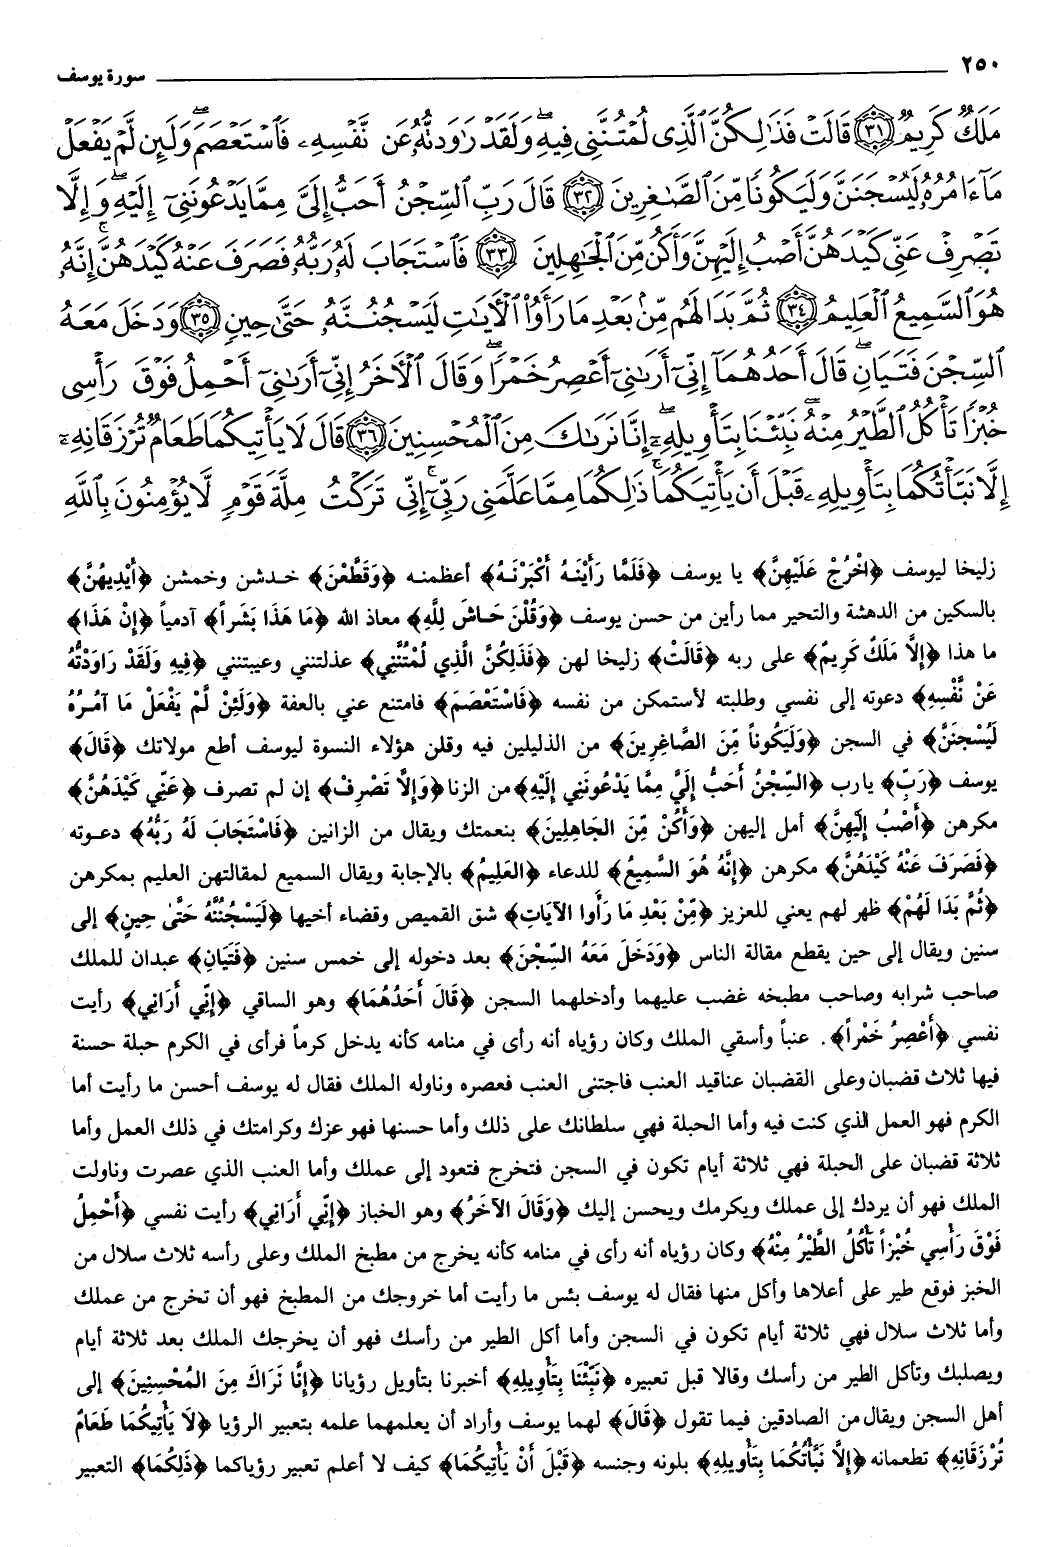 ٢٥٠ سورة يوسف
مَلَكٌ كَرِيمٌ ٣١ قَالَتْ فَذَٰلِكُنَّ ٱلَّذِى لُمْتُنَّنِى فِيهِ ۖ وَلَقَدْ رَٰوَدتُّهُۥ عَن نَّفْسِهِۦ فَٱسْتَعْصَمَ ۖ وَلَئِن لَّمْ يَفْعَلْ
مَآ ءَامُرُهُۥ لَيُسْجَنَنَّ وَلَيَكُونًا مِّنَ ٱلصَّٰغِرِينَ ٣٢ قَالَ رَبِّ ٱلسِّجْنُ أَحَبُّ إِلَىَّ مِمَّا يَدْعُونَنِىٓ إِلَيْهِ ۖ وَإِلَّا
تَصْرِفْ عَنِّى كَيْدَهُنَّ أَصْبُ إِلَيْهِنَّ وَأَكُن مِّنَ ٱلْجَٰهِلِينَ ٣٣ فَٱسْتَجَابَ لَهُۥ رَبُّهُۥ فَصَرَفَ عَنْهُ كَيْدَهُنَّ ۚ إِنَّهُۥ
هُوَ ٱلسَّمِيعُ ٱلْعَلِيمُ ٣٤ ثُمَّ بَدَا لَهُم مِّنۢ بَعْدِ مَا رَأَوُا۟ ٱلْأَيَٰتِ لَيَسْجُنُنَّهُۥ حَتَّىٰ حِينٍ ٣٥ وَدَخَلَ مَعَهُ
ٱلسِّجْنَ فَتَيَانِ ۖ قَالَ أَحَدُهُمَآ إِنِّىٓ أَرَىٰنِىٓ أَعْصِرُ خَمْرًا ۖ وَقَالَ ٱلْأَخَرُ إِنِّىٓ أَرَىٰنِىٓ أَحْمِلُ فَوْقَ رَأْسِى
خُبْزًا تَأْكُلُ ٱلطَّيْرُ مِنْهُ ۖ نَبِّئْنَا بِتَأْوِيلِهِۦٓ ۖ إِنَّا نَرَىٰكَ مِنَ ٱلْمُحْسِنِينَ ٣٦ قَالَ لَا يَأْتِيكُمَا طَعَامٌ تُرْزَقَانِهِۦٓ
إِلَّا نَبَّأْتُكُمَا بِتَأْوِيلِهِۦ قَبْلَ أَن يَأْتِيَكُمَا ۚ ذَٰلِكُمَا مِمَّا عَلَّمَنِى رَبِّىٓ ۚ إِنِّى تَرَكْتُ مِلَّةَ قَوْمٍ لَّا يُؤْمِنُونَ بِٱللَّهِ
زليخا ليوسف ﴿اخْرُجْ عَلَيْهِنَّ﴾ يا يوسف ﴿فَلَمَّا رَأَيْنَهُ أَكْبَرْنَهُ﴾ أعظمنه ﴿وَقَطَّعْنَ﴾ خدشن وخمشن ﴿أَيْدِيهُنَّ﴾
بالسكين من الدهشة والتحير مما رأين من حسن يوسف ﴿وَقُلْنَ حَاشَ لِلَّهِ﴾ معاذ الله ﴿مَا هَذَا بَشَراً﴾ آدمياً ﴿إِنْ هَذَا﴾
ما هذا ﴿إِلَّا مَلَكٌ كَرِيمٌ﴾ على ربه ﴿قَالَتْ﴾ زليخا لهن ﴿فَذَلِكُنَّ الَّذِي لُمْتُنَّنِي﴾ عذلتنني وعيبتنني ﴿فِيهِ وَلَقَدْ رَاوَدْتُّهُ
عَنْ نَّفْسِهِ﴾ دعوته إلى نفسي وطلبته لأستمكن من نفسه ﴿فَاسْتَعْصَمَ﴾ فامتنع عني بالعفة ﴿وَلَئِنْ لَّمْ يَفْعَلْ مَا آمُرُهُ
لَيُسْجَنَنَّ﴾ في السجن ﴿وَلَيَكُوناً مِّنَ الصَّاغِرِينَ﴾ من الذليلين فيه وقلن هؤلاء النسوة ليوسف أطع مولاتك ﴿قَالَ﴾
يوسف ﴿رَبِّ﴾ يارب ﴿السِّجْنُ أَحَبُّ إِلَيَّ مِمَّا يَدْعُونَنِي إِلَيْهِ﴾ من الزنا ﴿وَإِلَّا تَصْرِفْ﴾ إن لم تصرف ﴿عَنِّي كَيْدَهُنَّ﴾
مكرهن ﴿أَصْبُ إِلَيْهِنَّ﴾ أمل إليهن ﴿وَأَكُنْ مِّنَ الجَاهِلِينَ﴾ بنعمتك ويقال من الزانين ﴿فَاسْتَجَابَ لَهُ رَبُّهُ﴾ دعوته
﴿فَصَرَفَ عَنْهُ كَيْدَهُنَّ﴾ مكرهن ﴿إِنَّهُ هُوَ السَّمِيعُ﴾ للدعاء ﴿العَلِيمُ﴾ بالإجابة ويقال السميع لمقالتهن العليم بمكرهن
﴿ثُمَّ بَدَا لَهُمْ﴾ ظهر لهم يعني للعزيز ﴿مِّنْ بَعْدِ مَا رَأَوا الآيَاتِ﴾ شق القميص وقضاء أخيها ﴿لَيَسْجُنُنَّهُ حَتَّىٰ حِينٍ﴾ إلى
سنين ويقال إلى حين يقطع مقالة الناس ﴿وَدَخَلَ مَعَهُ السِّجْنَ﴾ بعد دخوله إلى خمس سنين ﴿فَتَيَانِ﴾ عبدان للملك
صاحب شرابه وصاحب مطبخه غضب عليهما وأدخلهما السجن ﴿قَالَ أَحَدُهُمَا﴾ وهو الساقي ﴿إِنِّي أَرَانِي﴾ رأيت
نفسي ﴿أَعْصِرُ خَمْراً﴾. عنباً وأسقي الملك وكان رؤياه أنه رأى في منامه كأنه يدخل كرماً فرأى في الكرم حبلة حسنة
فيها ثلاث قضبان وعلى القضبان عناقيد العنب فاجتنى العنب فعصره وناوله الملك فقال له يوسف أحسن ما رأيت أما
الكرم فهو العمل الذي كنت فيه وأما الحبلة فهي سلطانك على ذلك وأما حسنها فهو عزك وكرامتك في ذلك العمل وأما
ثلاثة قضبان على الحبلة فهي ثلاثة أيام تكون في السجن فتخرج فتعود إلى عملك وأما العنب الذي عصرت وناولت
الملك فهو أن يردك إلى عملك ويكرمك ويحسن إليك ﴿وَقَالَ الآخَرُ﴾ وهو الخباز ﴿إِنِّي أَرَانِي﴾ رأيت نفسي ﴿أَحْمِلُ
فَوْقَ رَأْسِي خُبْزاً تَأْكُلُ الطَّيْرُ مِنْهُ﴾ وكان رؤياه أنه رأى في منامه كأنه يخرج من مطبخ الملك وعلى رأسه ثلاث سلال من
الخبز فوقع طير على أعلاها وأكل منها فقال له يوسف بئس ما رأيت أما خروجك من المطبخ فهو أن تخرج من عملك
وأما ثلاث سلال فهي ثلاثة أيام تكون في السجن وأما أكل الطير من رأسك فهو أن يخرجك الملك بعد ثلاثة أيام
ويصلبك وتأكل الطير من رأسك وقالا قبل تعبيره ﴿نَبِّئْنَا بِتَأْوِيلِهِ﴾ أخبرنا بتأويل رؤيانا ﴿إِنَّا نَرَاكَ مِنَ المُحْسِنِينَ﴾ إلى
أهل السجن ويقال من الصادقين فيما تقول ﴿قَالَ﴾ لهما يوسف وأراد أن يعلمهما علمه بتعبير الرؤيا ﴿لَا يَأْتِيكُمَا طَعَامٌ
تُرْزَقَانِهِ﴾ تطعمانه ﴿إِلَّا نَبَّأْتُكُمَا بِتَأْوِيلِهِ﴾ بلونه وجنسه ﴿قَبْلَ أَنْ يَأْتِيكُمَا﴾ كيف لا أعلم تعبير رؤياكما ﴿ذَلِكُمَا﴾ التعبير